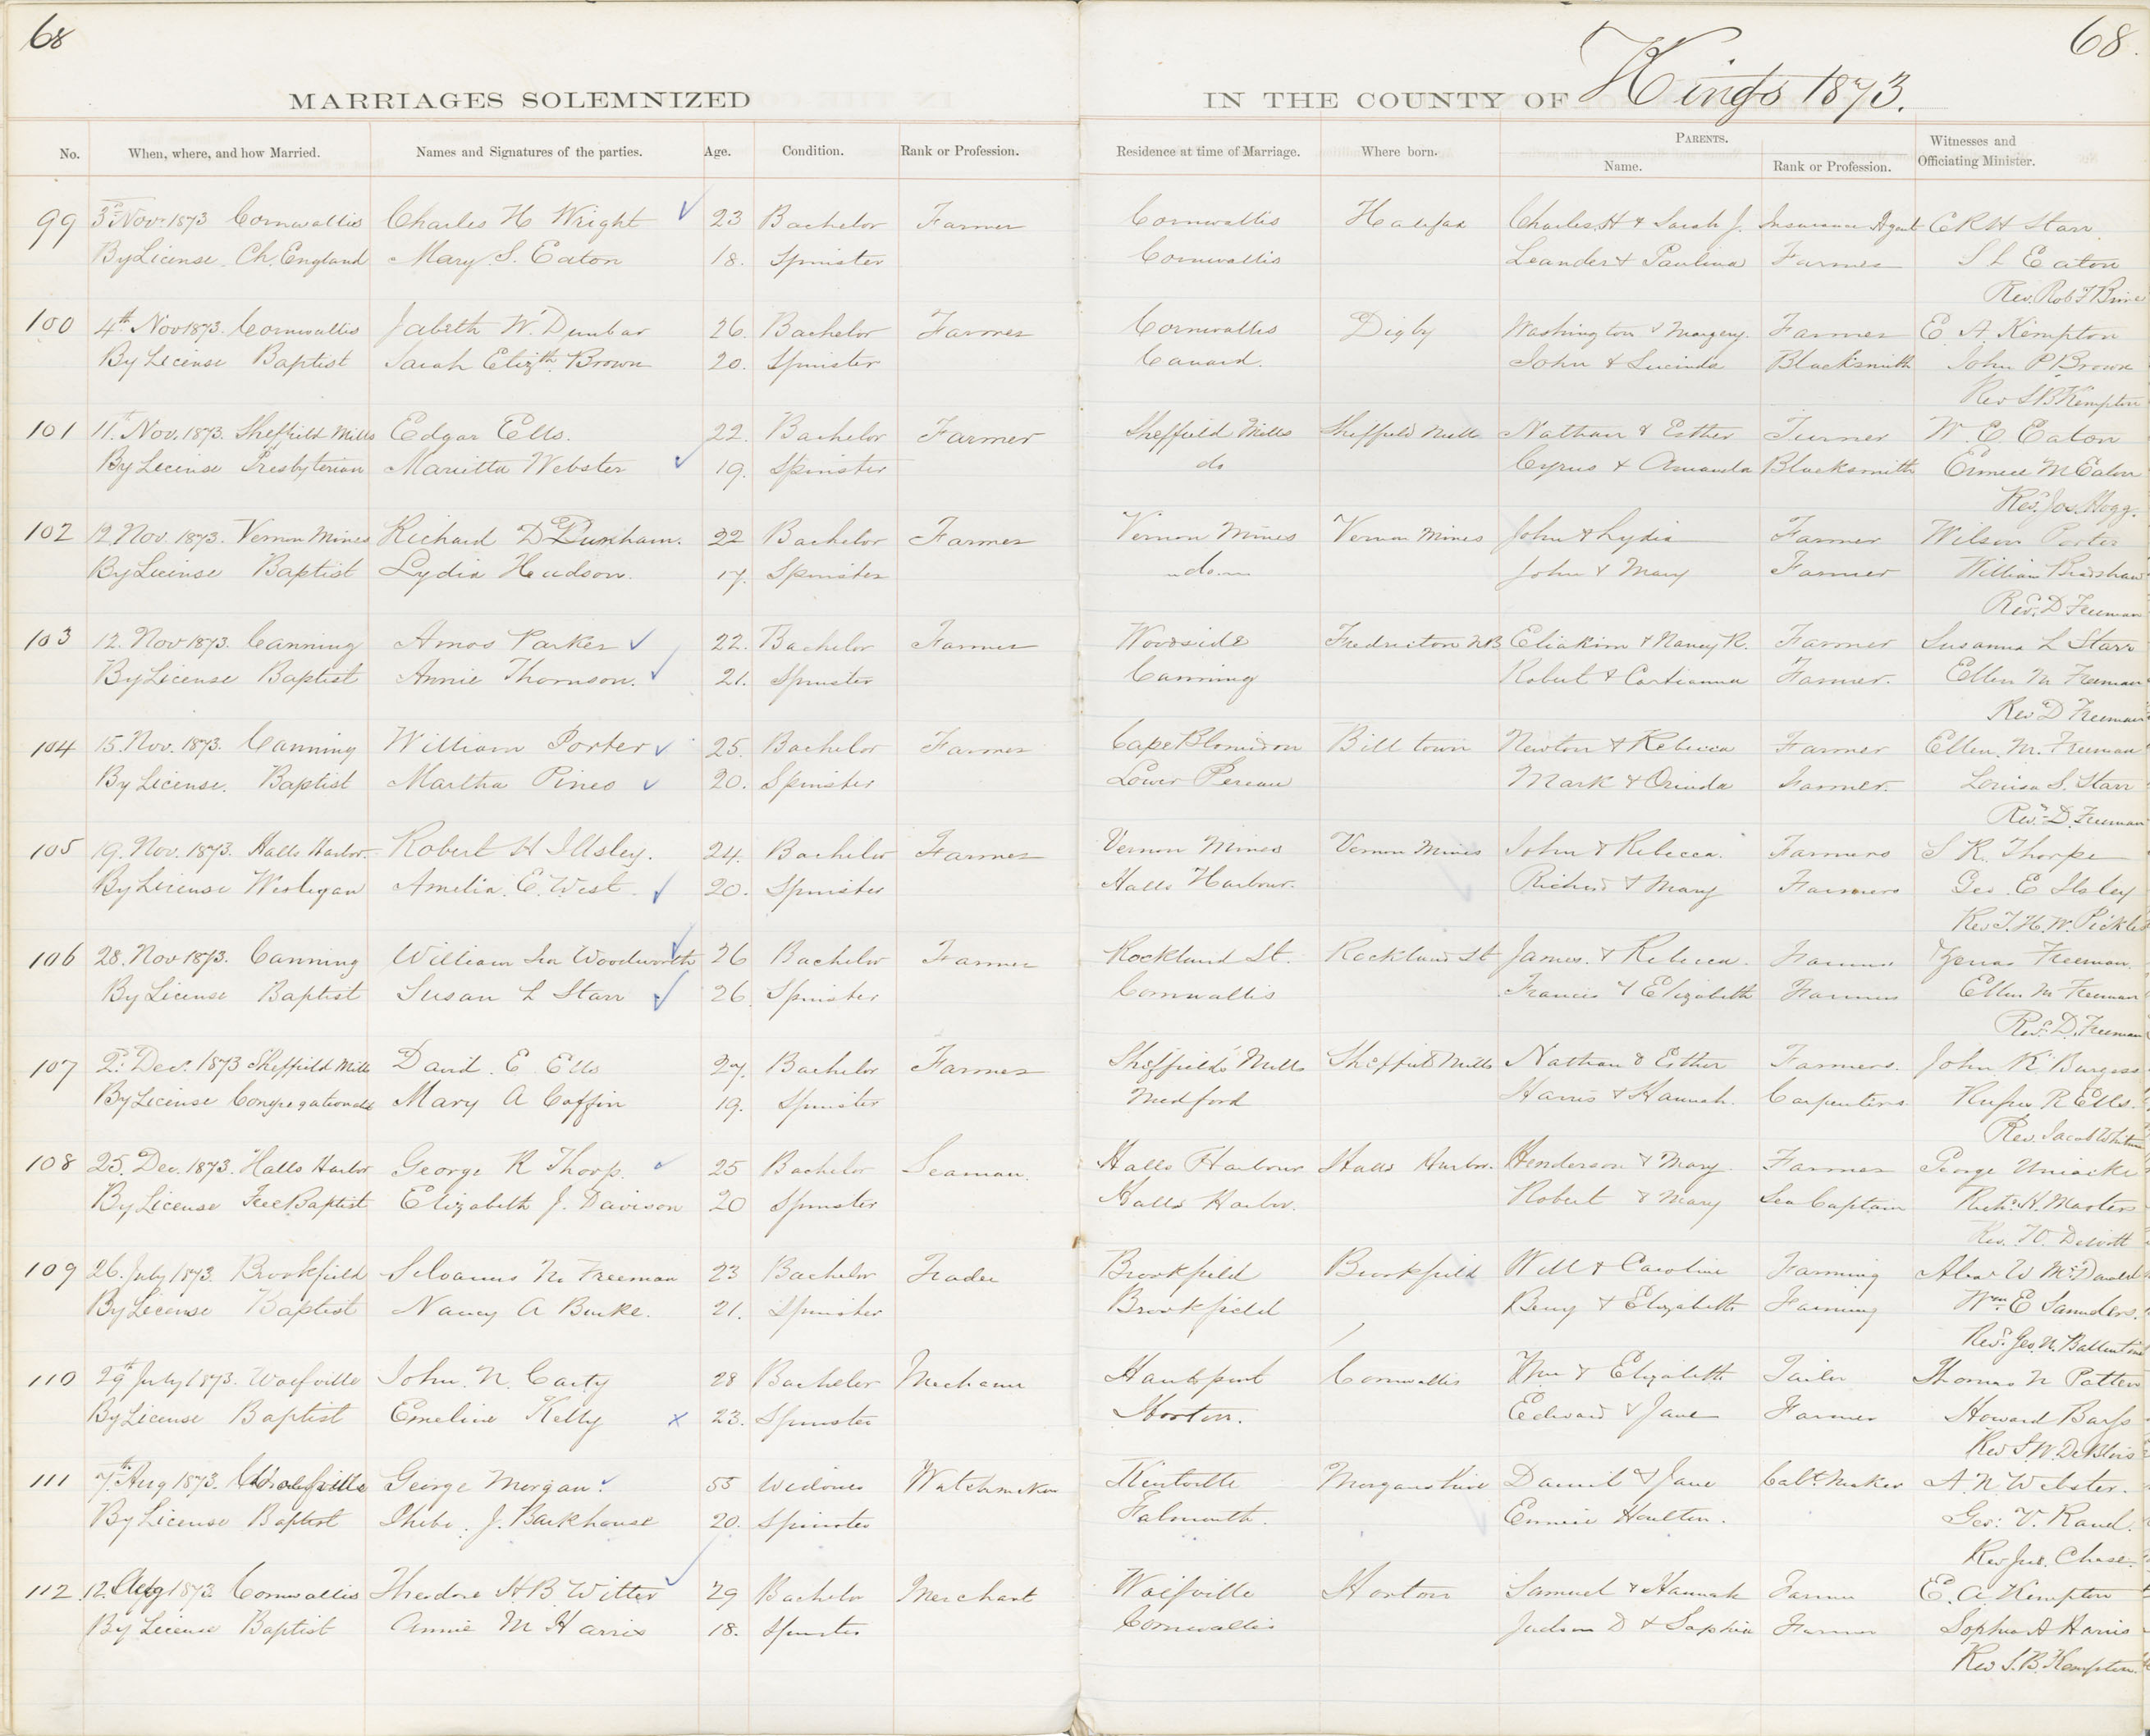 68
68.
MARRIAGES SOLEMNIZED IN THE COUNTY OF Kings 1873.
No. When, where, and how Married. Names and Signatures of the parties. Age. Condition. Rank or Profession. Residence at time of Marriage. Where born. PARENTS. Name. Rank or Profession. Witnesses and Officiating Minister.
99 3d Nov. 1873 Cornwallis Charles H Wright 23 Bachelor Farmer Cornwallis Halifax Charles H & Sarah J. Insurance Agent C R H Starr
By License Ch. England Mary S. Eaton 18. Spinster Cornwallis Leander & Paulina Farmer S L Eaton
Rev. Rob F
100 4th Nov 1873. Cornwallis Jabeth W. Dunbar 26. Bachelor Farmer Cornwallis Digby Washington & Margery. Farmer E. A. Kempton
By License Baptist Sarah Elizth. Brown 20. Spinster Canard. John & Lucinda Blacksmith John P Brown
Rev S B Kempton
101 11th Nov. 1873. Sheffield Mills Edgar Ells. 22. Bachelor Farmer Sheffield Mills Sheffield Mills Nathan & Esther Turner W. E Eaton
By License Presbyterian Marietta Webster 19. Spinster do Cyrus & Amanda Blacksmith M Eaton
Revd. Jos. Hogg.
102 12. Nov. 1873. Vernon Mines Richard D Dunham. 22 Bachelor Farmer Vernon Mines Vernon Mines John & Lydia Farmer Wilson Porter
By License Baptist Lydia Hudson. 17. Spinster do John & Mary Farmer William Bradshaw
Revd. D Freeman
103 12. Nov 1873. Canning Amos Parker 22. Bachelor Farmer Woodside Fredricton NB Eliakim & Nancy R. Farmer Susanna L Starr
By License Baptist Annie Thomson. 21. Spinster Canning Robert & Farmer. Ellen M Freeman
Rev D Freeman
104 15. Nov. 1873. Canning William Porter 25. Bachelor Farmer Cape Blomidon Bill town Newton & Rebecca Farmer Ellen. M. Freeman
By License. Baptist Martha Pineo 20. Spinster Lower Pereau Mark & Orinda Farmer. Louisa S. Starr
Revd. D. Freeman
105 19. Nov. 1873. Halls Harbor. Robert H Illsley. 24. Bachelor Farmer Vernon Mines Vernon Mines John & Rebecca. Farmers S R. Thorpe
By License Weslegan Amelia. E. West. 20. Spinster Halls Harbour. Richard & Mary Farmers Geo. E Ilsley
Rev J. H. W. Pickles
106 28. Nov 1873. Canning William Ira Woodworth 26 Bachelor Farmer Rockland St. Rockland St James. & Rebecca. Farmer Zenas Freeman.
By License Baptist Susan L Starr 26. Spinster Cornwallis Francis & Elizabeth Farmers Ellen M Freeman
Revd. D. Freeman
107 2d. Dec. 1873 Sheffield Mills David. E Ells 27. Bachelor Farmer Sheffield Mills Sheffield Mills Nathan & Esther Farmers. John R Burgess
By License Congregational Mary A Coffin 19. Spinster Medford Harris & Hannah. Carpenters Rufus R Ells.
Rev. Jacob Whitman
108 25. Dec. 1873. Halls Harbor George R Thorp. 25 Bachelor Seaman. Halls Harbour Halls Harbor. Henderson & Mary Farmer George Uniacke
By License Free Baptist Elizabeth J. Davison 20 Spinster Halls Harbor. Robert & Mary Sea Captain Richd. H. Masters
Rev. W.
109 26. July 1873. Brookfield Silvanus N. Freeman 23 Bachelor Trader Brookfield Brookfield Will & Caroline Farming Alexr W McDonald
By License Baptist Nancy A Burke. 21. Spinster Brookfield Benj & Elizabeth Farming Wm. E Saunders.
Revd. Geo. N. Ballentine
110 29th July 1873. Wolfville John. N. Carty 28 Bachelor Mechanic Hantsport Cornwallis Wm & Elizabeth Tailor Thomas N Patten
By License Baptist Emeline Kelly 23. Spinster Horton. Edward & Jane Farmer Howard Barss
Rev S. W. DeBlois
111 7th. Aug 1873. Wolfville George Morgan. 55 Widower Watchmaker Kentville Daniel & Jane Cabt. Maker A. N. Webster.
By License Baptist Phebe. J. Backhouse 20. Spinster Falmouth. Houlton. Geo. V. Rand.
Rev Chase.
112. 12. Aug 1873 Cornwallis Theodore H. B. Witter 29 Bachelor Merchant Wolfville Horton Samuel & Hannah Farmer E. A Kempton
By License Baptist Annie M Harris 18. Spinster Cornwallis Judson D & Sophia Farmer Sophia A Harris
Rev S. B. Kempton.